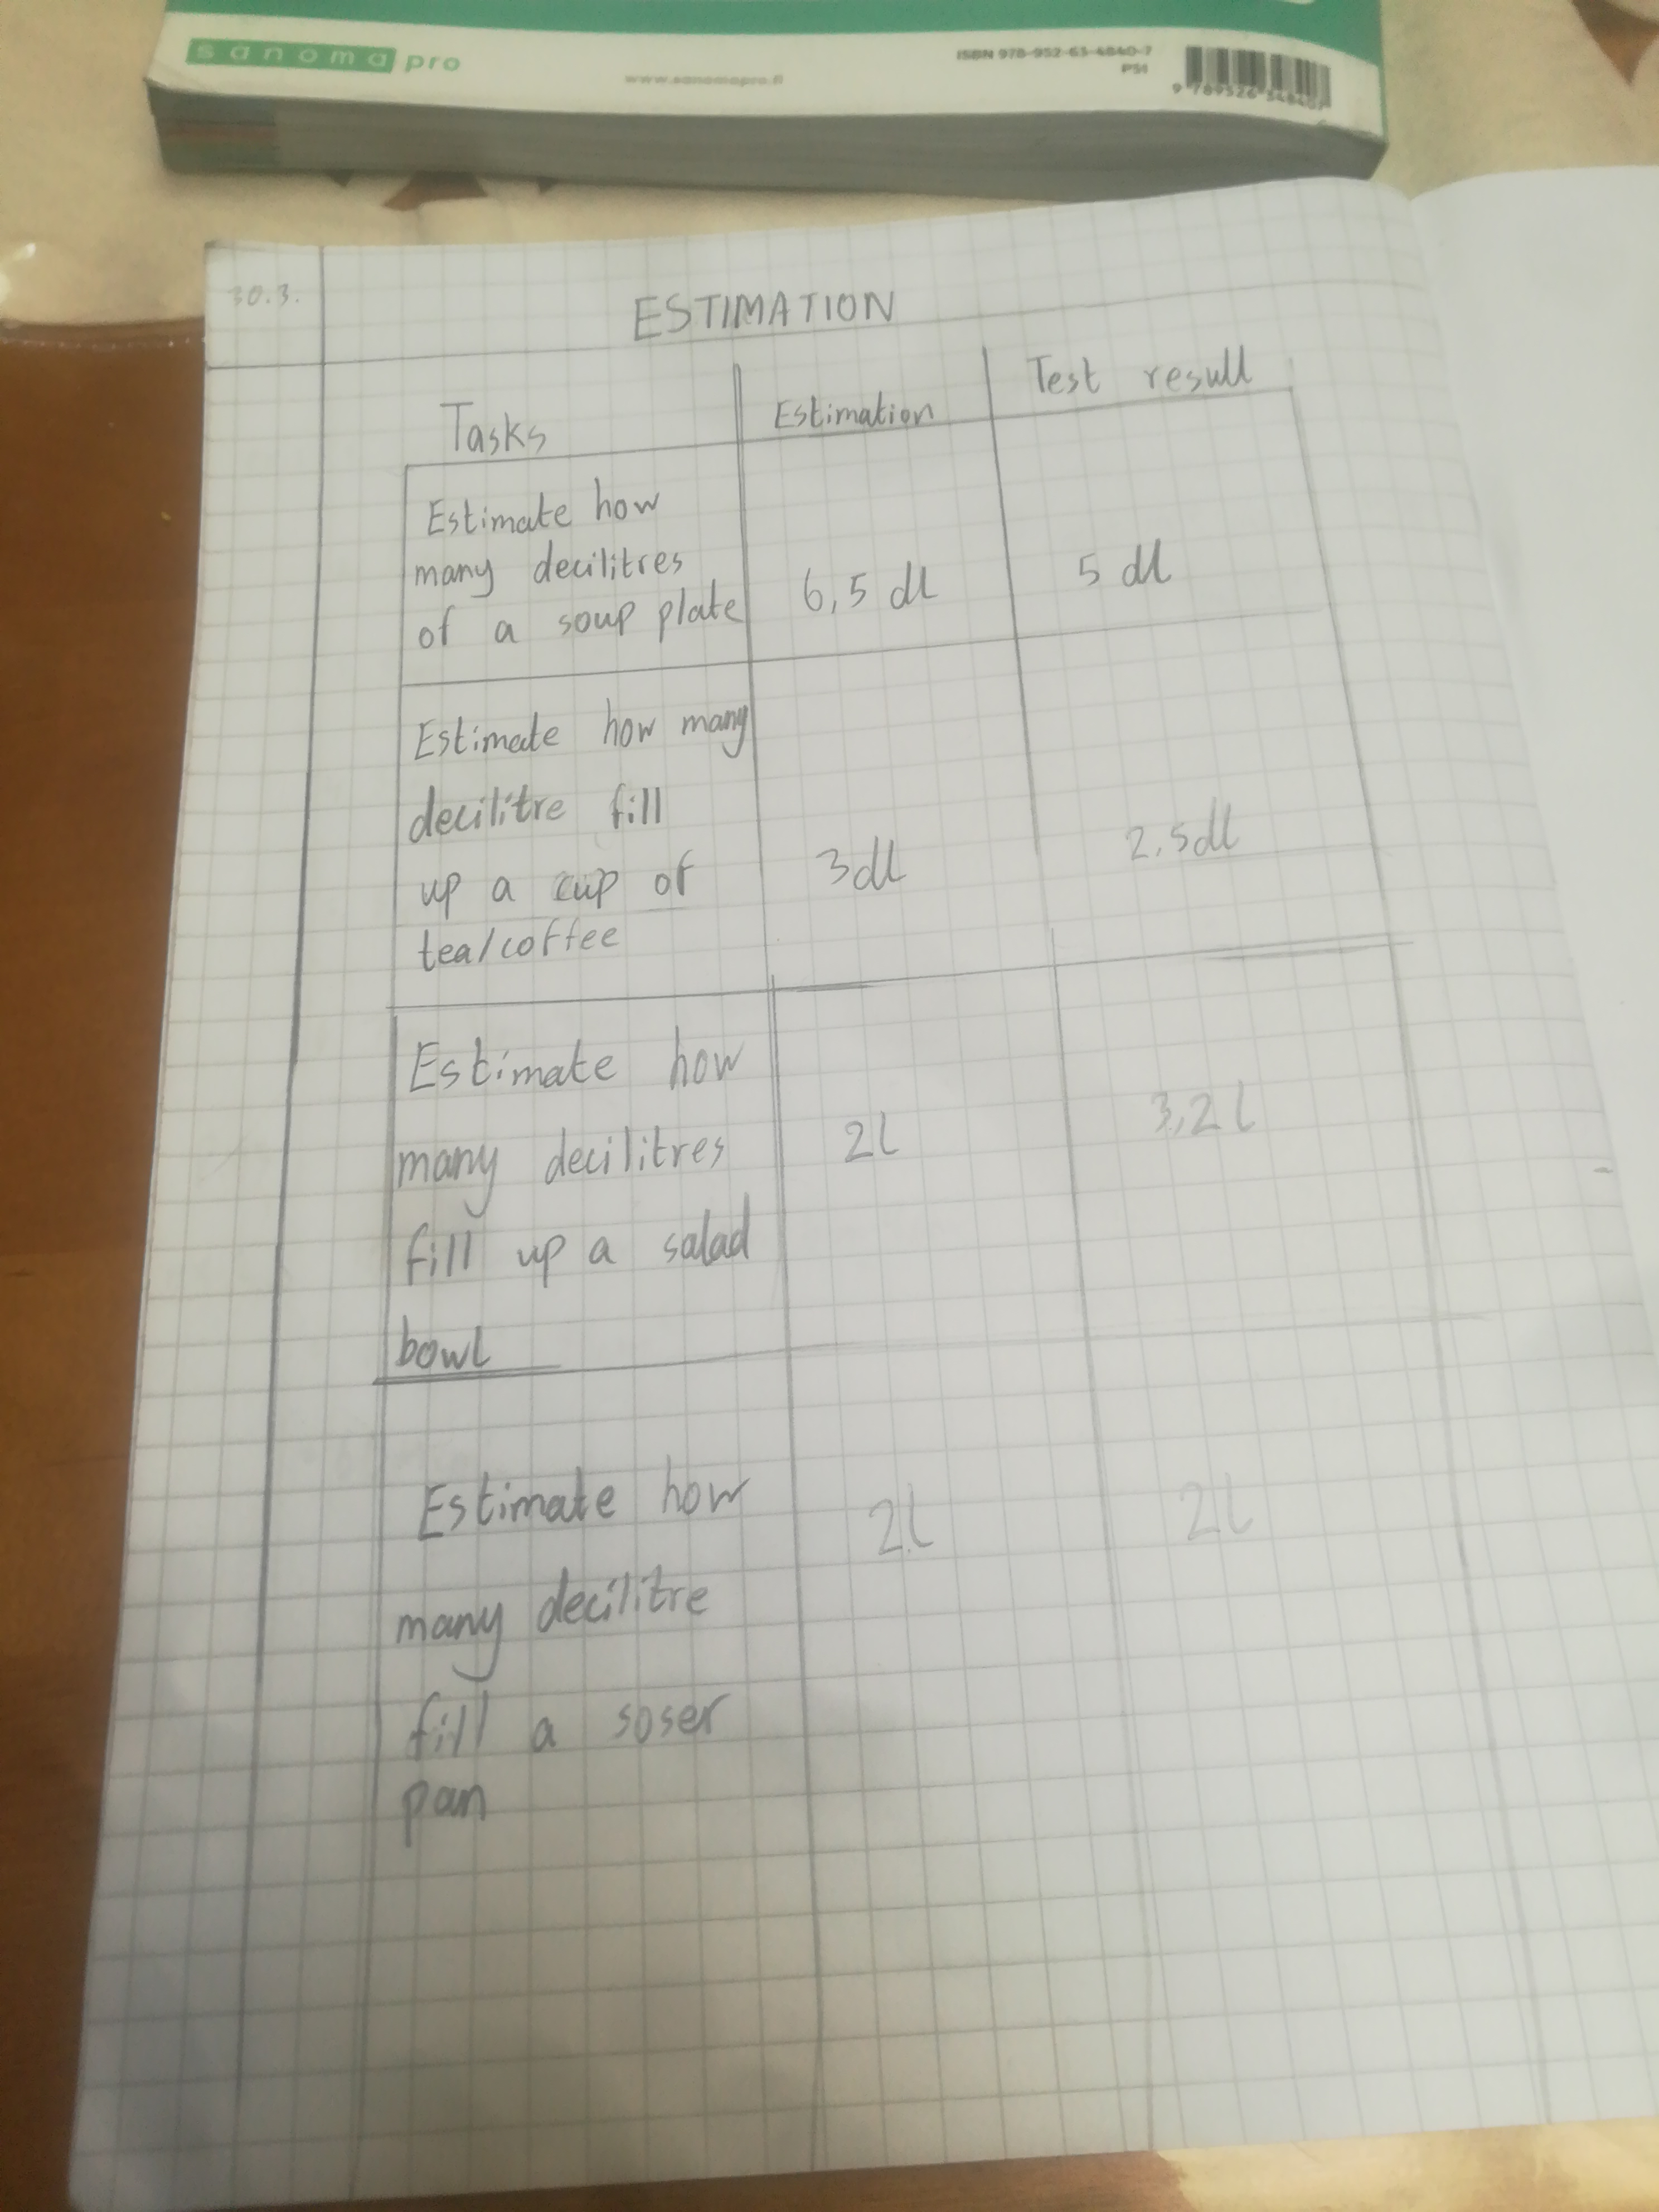 sanoma pro
www.sanomapro.fi
ISBN 978-952-63-4840-7
PS1
9 789526 348407
30.3.
ESTIMATION
Tasks
Estimation
Test result
Estimate how
many decilitres
of a soup plate
6,5 dl
5 dl
Estimate how many
decilitre fill
up a cup of
tea/coffee
3dl
2,5dl
Estimate how
many decilitres
fill up a salad
bowl
2l
3,2 l
Estimate how
many decilitre
fill a soser
pan
2l
2l